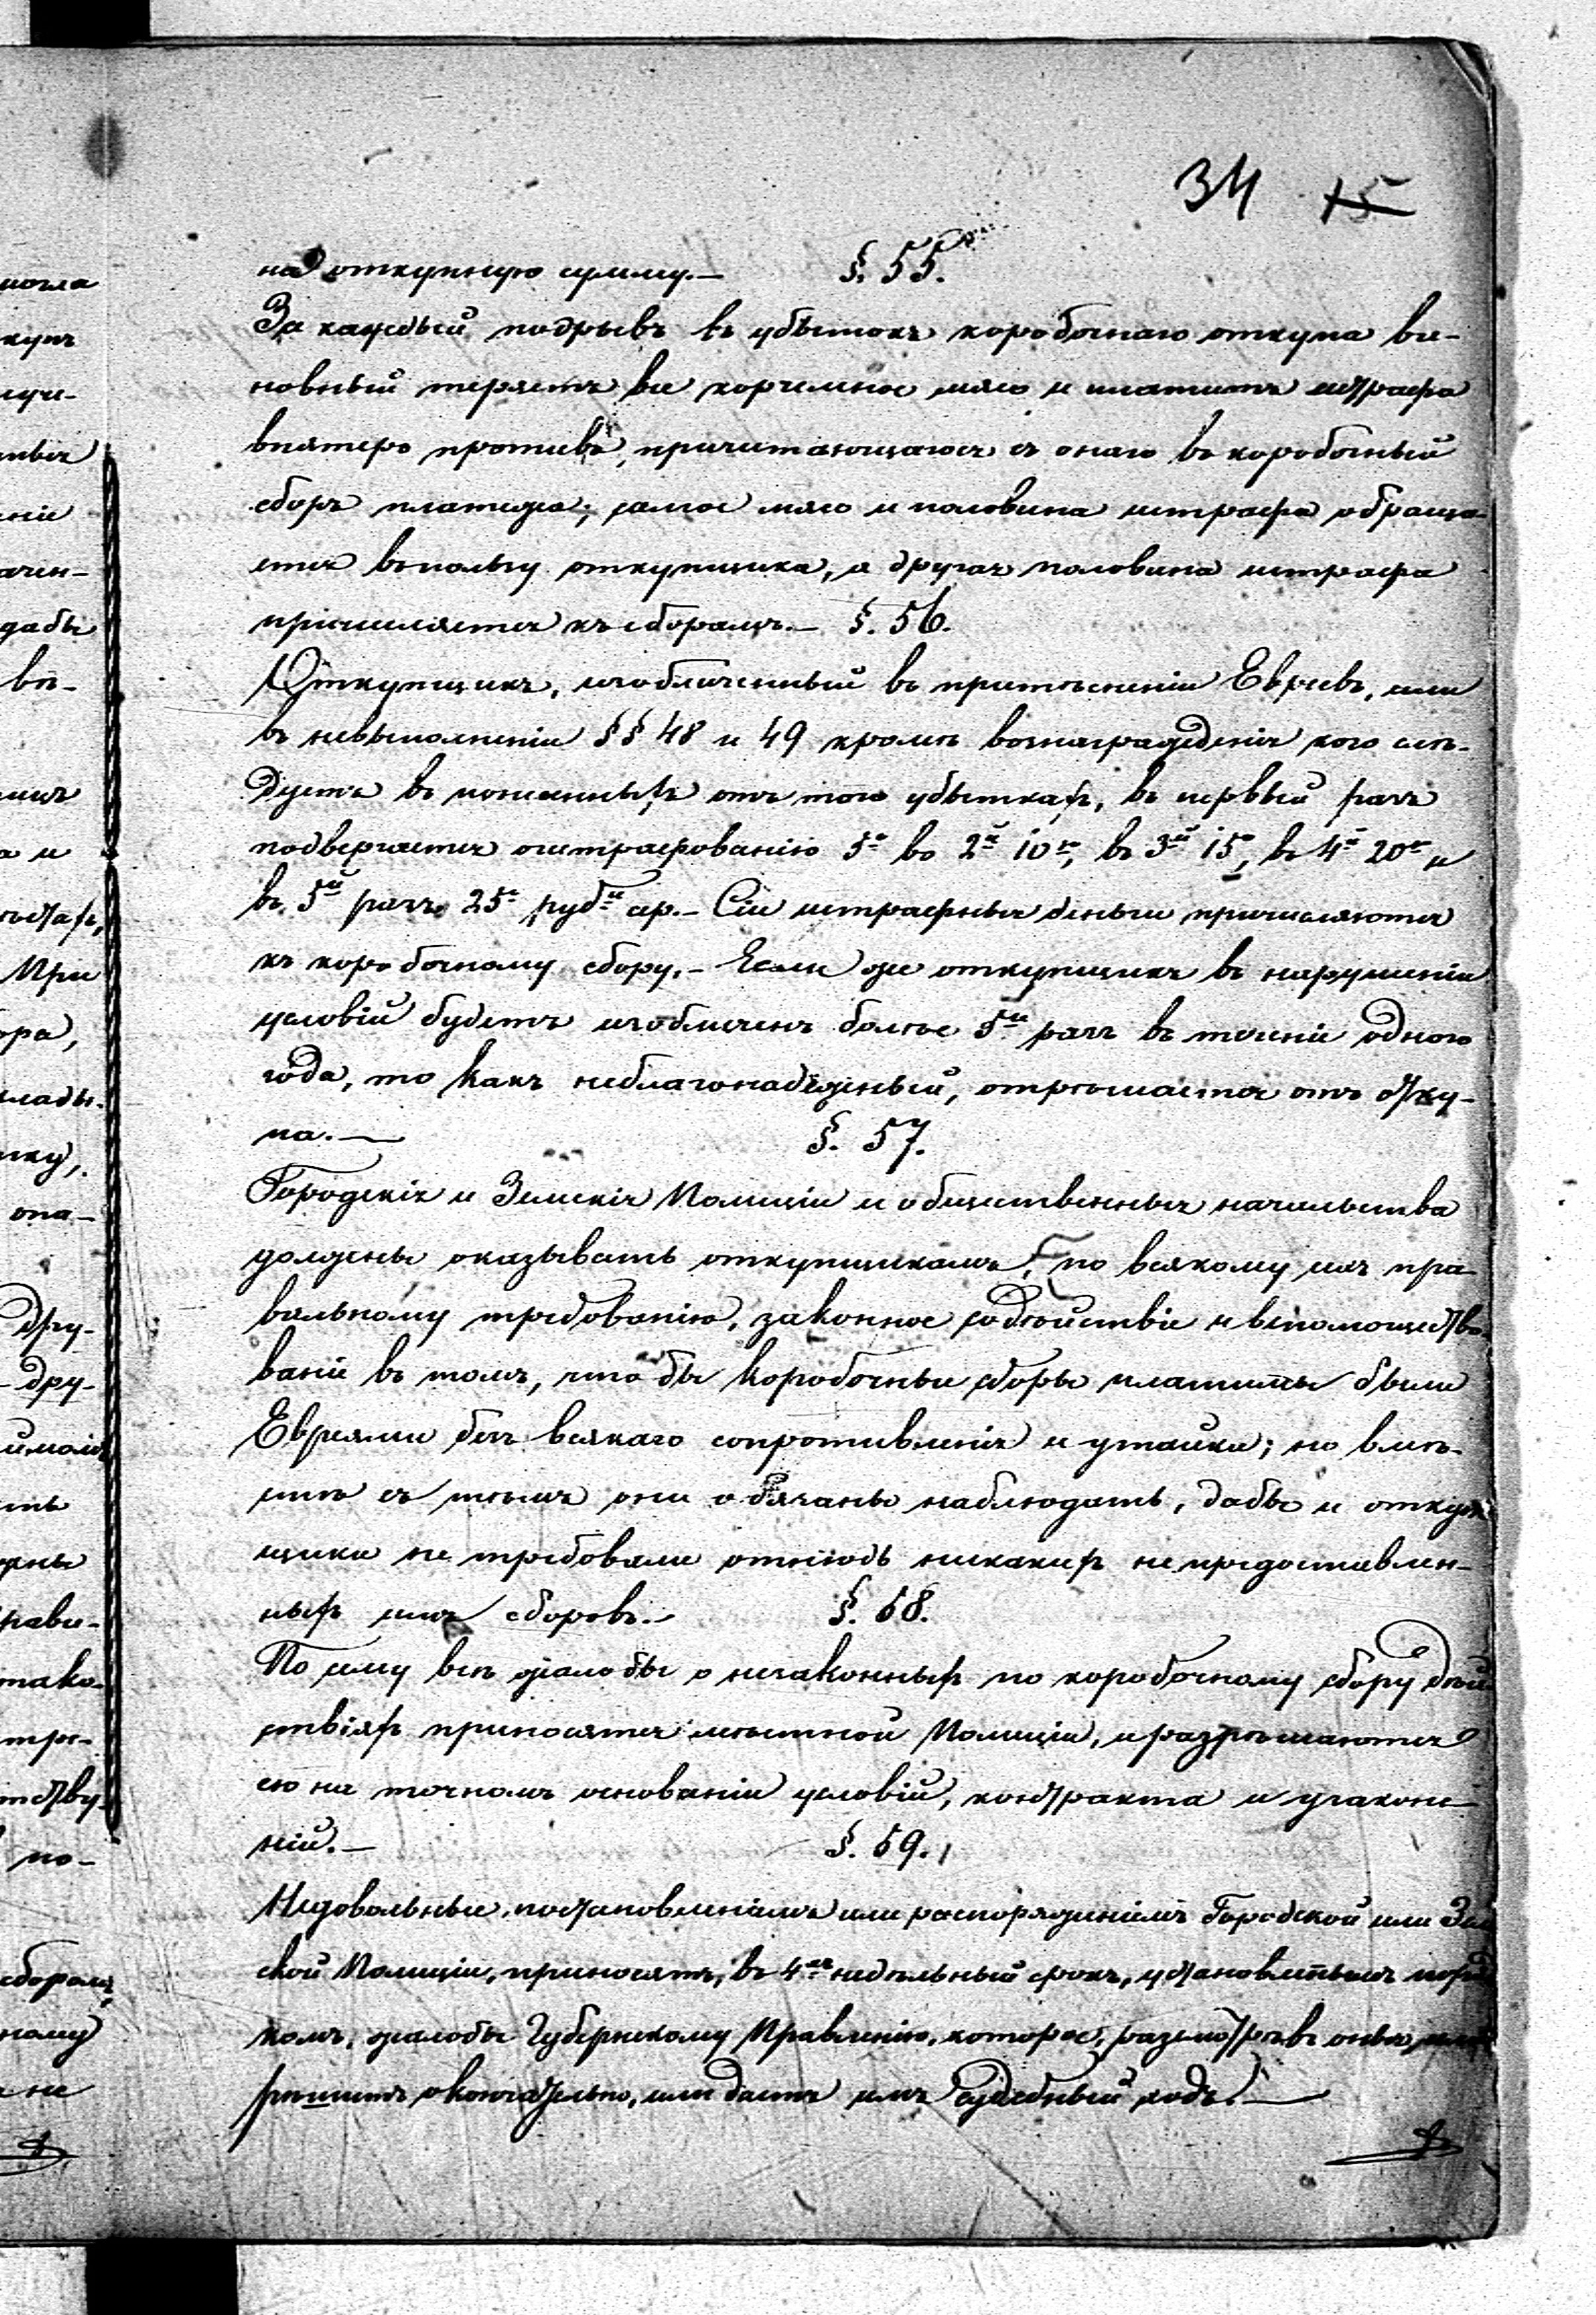 34 15
на откупную сумму.— §. 55.
За каждый подрывъ въ убытокъ коробочнаго откупа ви-
новный теряетъ все корчемное мясо и платитъ штрафа
впятеро противъ, причитающагося съ онаго въ коробочный
сборъ платежа; самое мясо и половина штрафа обраща-
ется въ пользу откупщика, а другая половина штрафа
причисляется къ сборамъ.— §. 56.
Откупщикъ, изобличенный въ притѣсненіи Евреевъ, или
въ невыполненіи §§ 48 и 49 кромѣ вознагражденія кого слѣ-
дуетъ въ понесенныхъ отъ того убыткахъ, въ первый разъ
подвергается оштрафованію 5ю во 2й 10ю, въ 3й 15ю, въ 4й 20ю и
въ 5й разъ 25ю руб. сер.— Сіи штрафныя деньги причисляются
къ коробочному сбору.— Если же откупщикъ въ нарушеніи
условій будетъ изобличенъ болѣе 5ти разъ въ теченіе одного
года, то какъ неблагонадежный, отрѣшается отъ отку-
па.— §. 57.
Городскія и Земскія Полиціи и общественныя начальства
должны оказывать откупщикамъ, по всякому ихъ пра-
вильному требованію, законное содѣйствіе и вспомощество-
ваніе въ томъ, что бы коробочные сборы платимы были
Евреями безъ всякаго сопротивленія и утайки; но вмѣ-
стѣ съ тѣмъ они обязаны наблюдать, дабы и откуп
щики не требовали отнюдь никакихъ непредоставлен-
ныхъ имъ сборовъ.— §. 58.
По сему всѣ жалобы о незаконныхъ по коробочному сбору дѣй
ствіяхъ приносятся мѣстной Полиціи, и разрѣшаются
ею на точномъ основаніи условій, контракта и узаконе-
ній.— §. 59.
Недовольные постановленіемъ или распоряженіемъ Городской или Зем
ской Полиціи, приносятъ, въ 4хъ недѣльный срокъ, установленнымъ поряд
комъ, жалобы Губернскому Правленію, которое, разсмотрѣвъ оныя, или
рѣшитъ окончательно, или дастъ имъ судебный ходъ.—